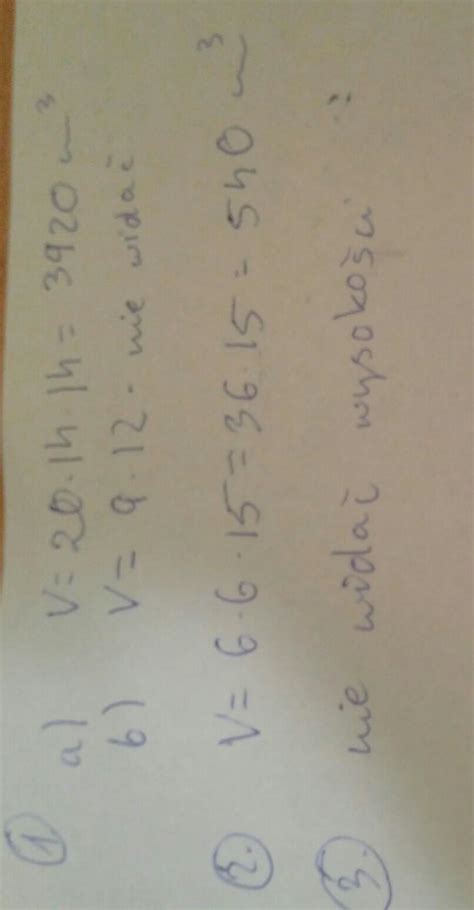 1. a) V = 20 · 14 · 14 = 3920 m³
b) V = 9 · 12 · nie widać
2. V = 6 · 6 · 15 = 36 · 15 = 540 m³
3. nie widać wysokości :